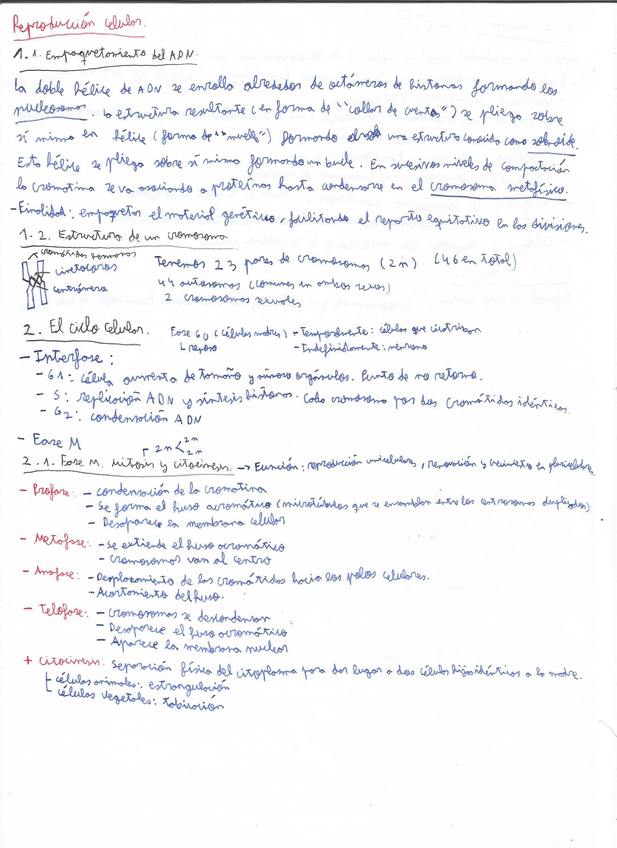 Reproducción celular.
1.1. Empaquetamiento del ADN
La doble hélice de ADN se enrolla alrededor de octámeros de histonas formando los
nucleosomas. La estructura resultante (en forma de "collar de cuentas") se pliega sobre
sí misma en hélice (forma de "muelle") formando una estructura conocida como solenoide.
Esta hélice se pliega sobre sí misma formando un bucle. En sucesivos niveles de compactación
la cromatina se va asociando a proteínas hasta condensarse en el cromosoma metafásico.
- Finalidad: empaquetar el material genético, facilitando el reparto equitativo en las divisiones.
1.2. Estructura de un cromosoma
cromátidas hermanas
cinetocoros
centrómero
Tenemos 23 pares de cromosomas (2n) (46 en total)
44 autosomas (comunes en ambos sexos)
2 cromosomas sexuales
2. El ciclo celular.
Fase G0 (células madres) - Temporalmente: células que cicatrizan
reposo - Indefinidamente: neurona
- Interfase:
- G1: célula aumenta de tamaño y número orgánulos. Punto de no retorno.
- S: replicación ADN y síntesis histonas. Cada cromosoma por dos cromátidas idénticas.
- G2: condensación ADN
- Fase M
2n < 2n 2n
2.1. Fase M. Mitosis y citocinesis. → Función: reproducción unicelulares, renovación y crecimiento en pluricelulares.
- Profase: - condensación de la cromatina
- Se forma el huso acromático (microtúbulos que se ensamblan entre los centrosomas duplicados)
- Desaparece la membrana celular
- Metafase: - se extiende el huso acromático
- cromosomas van al centro
- Anafase: - Desplazamiento de las cromátidas hacia los polos celulares.
- Acortamiento del huso.
- Telofase: - cromosomas se descondensan
- Desaparece el huso acromático
- Aparece la membrana nuclear
+ Citocinesis: Separación física del citoplasma para dar lugar a dos células hijas idénticas a la madre.
células animales: estrangulación
células vegetales: tabicación